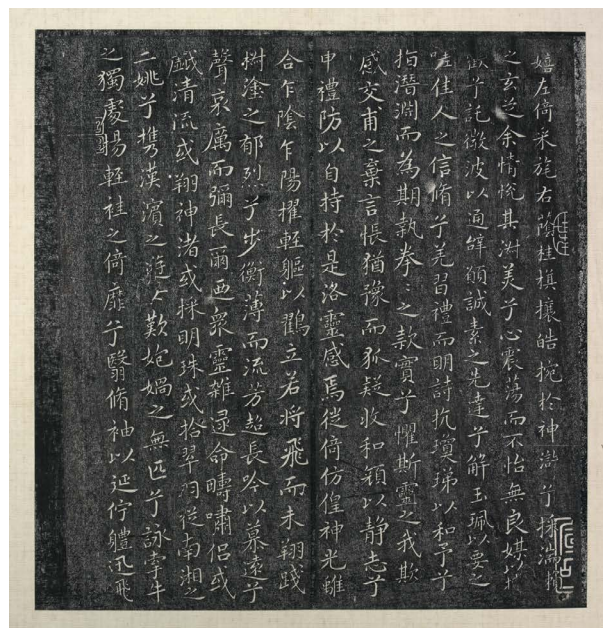 嬉左倚采旄右蔭桂旗攘皓捥於神滸兮採湍瀨
之玄芝余情悅其淑美兮心震蕩而不怡無良媒以接
歡兮託微波以通辭願誠素之先達兮解玉珮以要之
嗟佳人之信脩兮羌習禮而明詩抗瓊珶以和予兮
指潛淵而為期執拳〻之款實兮懼斯靈之我欺
感交甫之棄言悵猶豫而狐疑收和顏以静志兮
申禮防以自持於是洛靈感焉徙倚仿偟神光離
合乍陰乍陽擢輕軀以鸖立若將飛而未翔踐
椒塗之郁烈兮步衡薄而流芳超長吟以慕遠兮
聲哀厲而彌長爾迺衆靈雜遝命疇嘯侶或
戲清流或翔神渚或採明珠或拾翠羽從南湘之
二姚兮携漢濱之遊女歎炮媧之無匹兮詠牽牛
之獨處揚輕袿之倚靡兮翳脩袖以延佇體迅飛